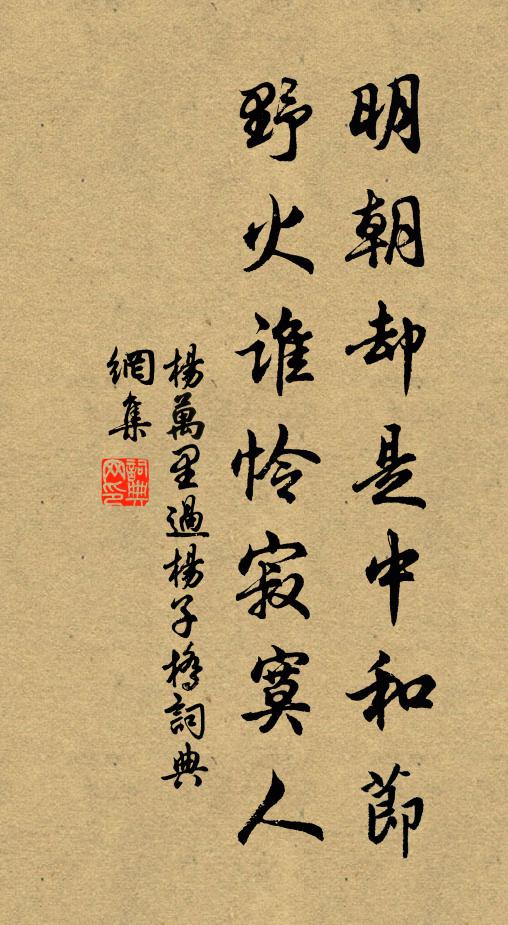 明朝却是中和節
野火誰怜寂寞人
楊萬里過楊子橋詞典
網集
詞典
网印